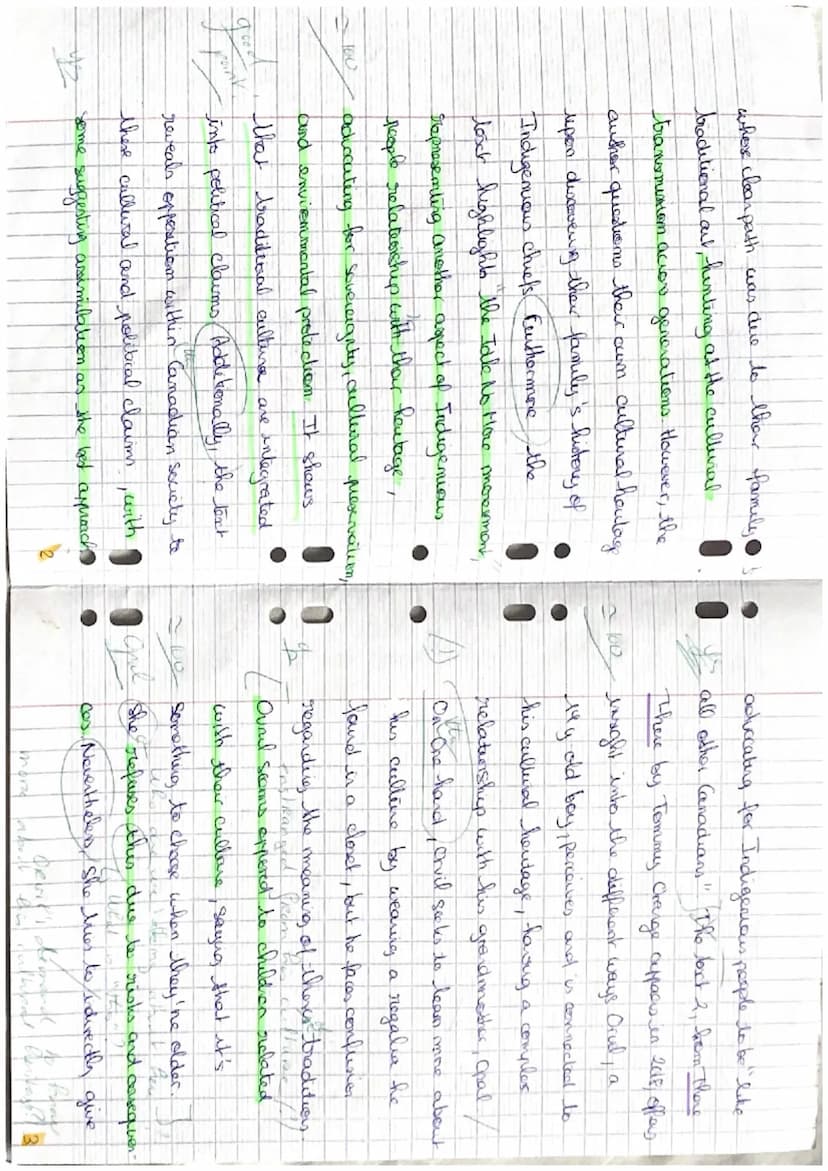 where clear path was due to their family's
traditional art, hinting at the cultural
transmission across generations. However, the
author questions their own cultural heritage
upon discovering their family's history of
Indigenous chiefs. Furthermore the
text highlights "the Idle No More movement,"
representing another aspect of Indigenous
people relationship with their heritage,
advocating for sovereignty, cultural preservation,
and environmental protection. It shows
that traditional culture are integrated
good point.
into political claims. Additionally, the text
reveals opposition within Canadian society to
these cultural and political claims, with
some suggesting assimilation as the best approach
2
advocating for Indigenous people to be "like
all other Canadians". The text 2, from There
There by Tommy Orange appears in 2018, offers
insight into the different ways Orvil, a
14 y old boy, perceives and is connected to
his cultural heritage, having a complex
relationship with his grandmother, Opal
On one hand, Orvil seeks to learn more about
his culture by wearing a regalia he
found in a closet, but he faces confusion
regarding the meaning of these traditions
Orvil seems opposed to children related
with their culture, saying that it's
something to chose when they're older.
Opal
She refuses this due to risks and consequen-
ces. Nevertheless, she tries to indirectly give
3